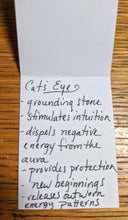 Cat's Eye
- grounding stone
- Stimulates intuition
dispels negative
energy from the
aura
- provides protection
new beginnings
- releases outworn
energy patterns